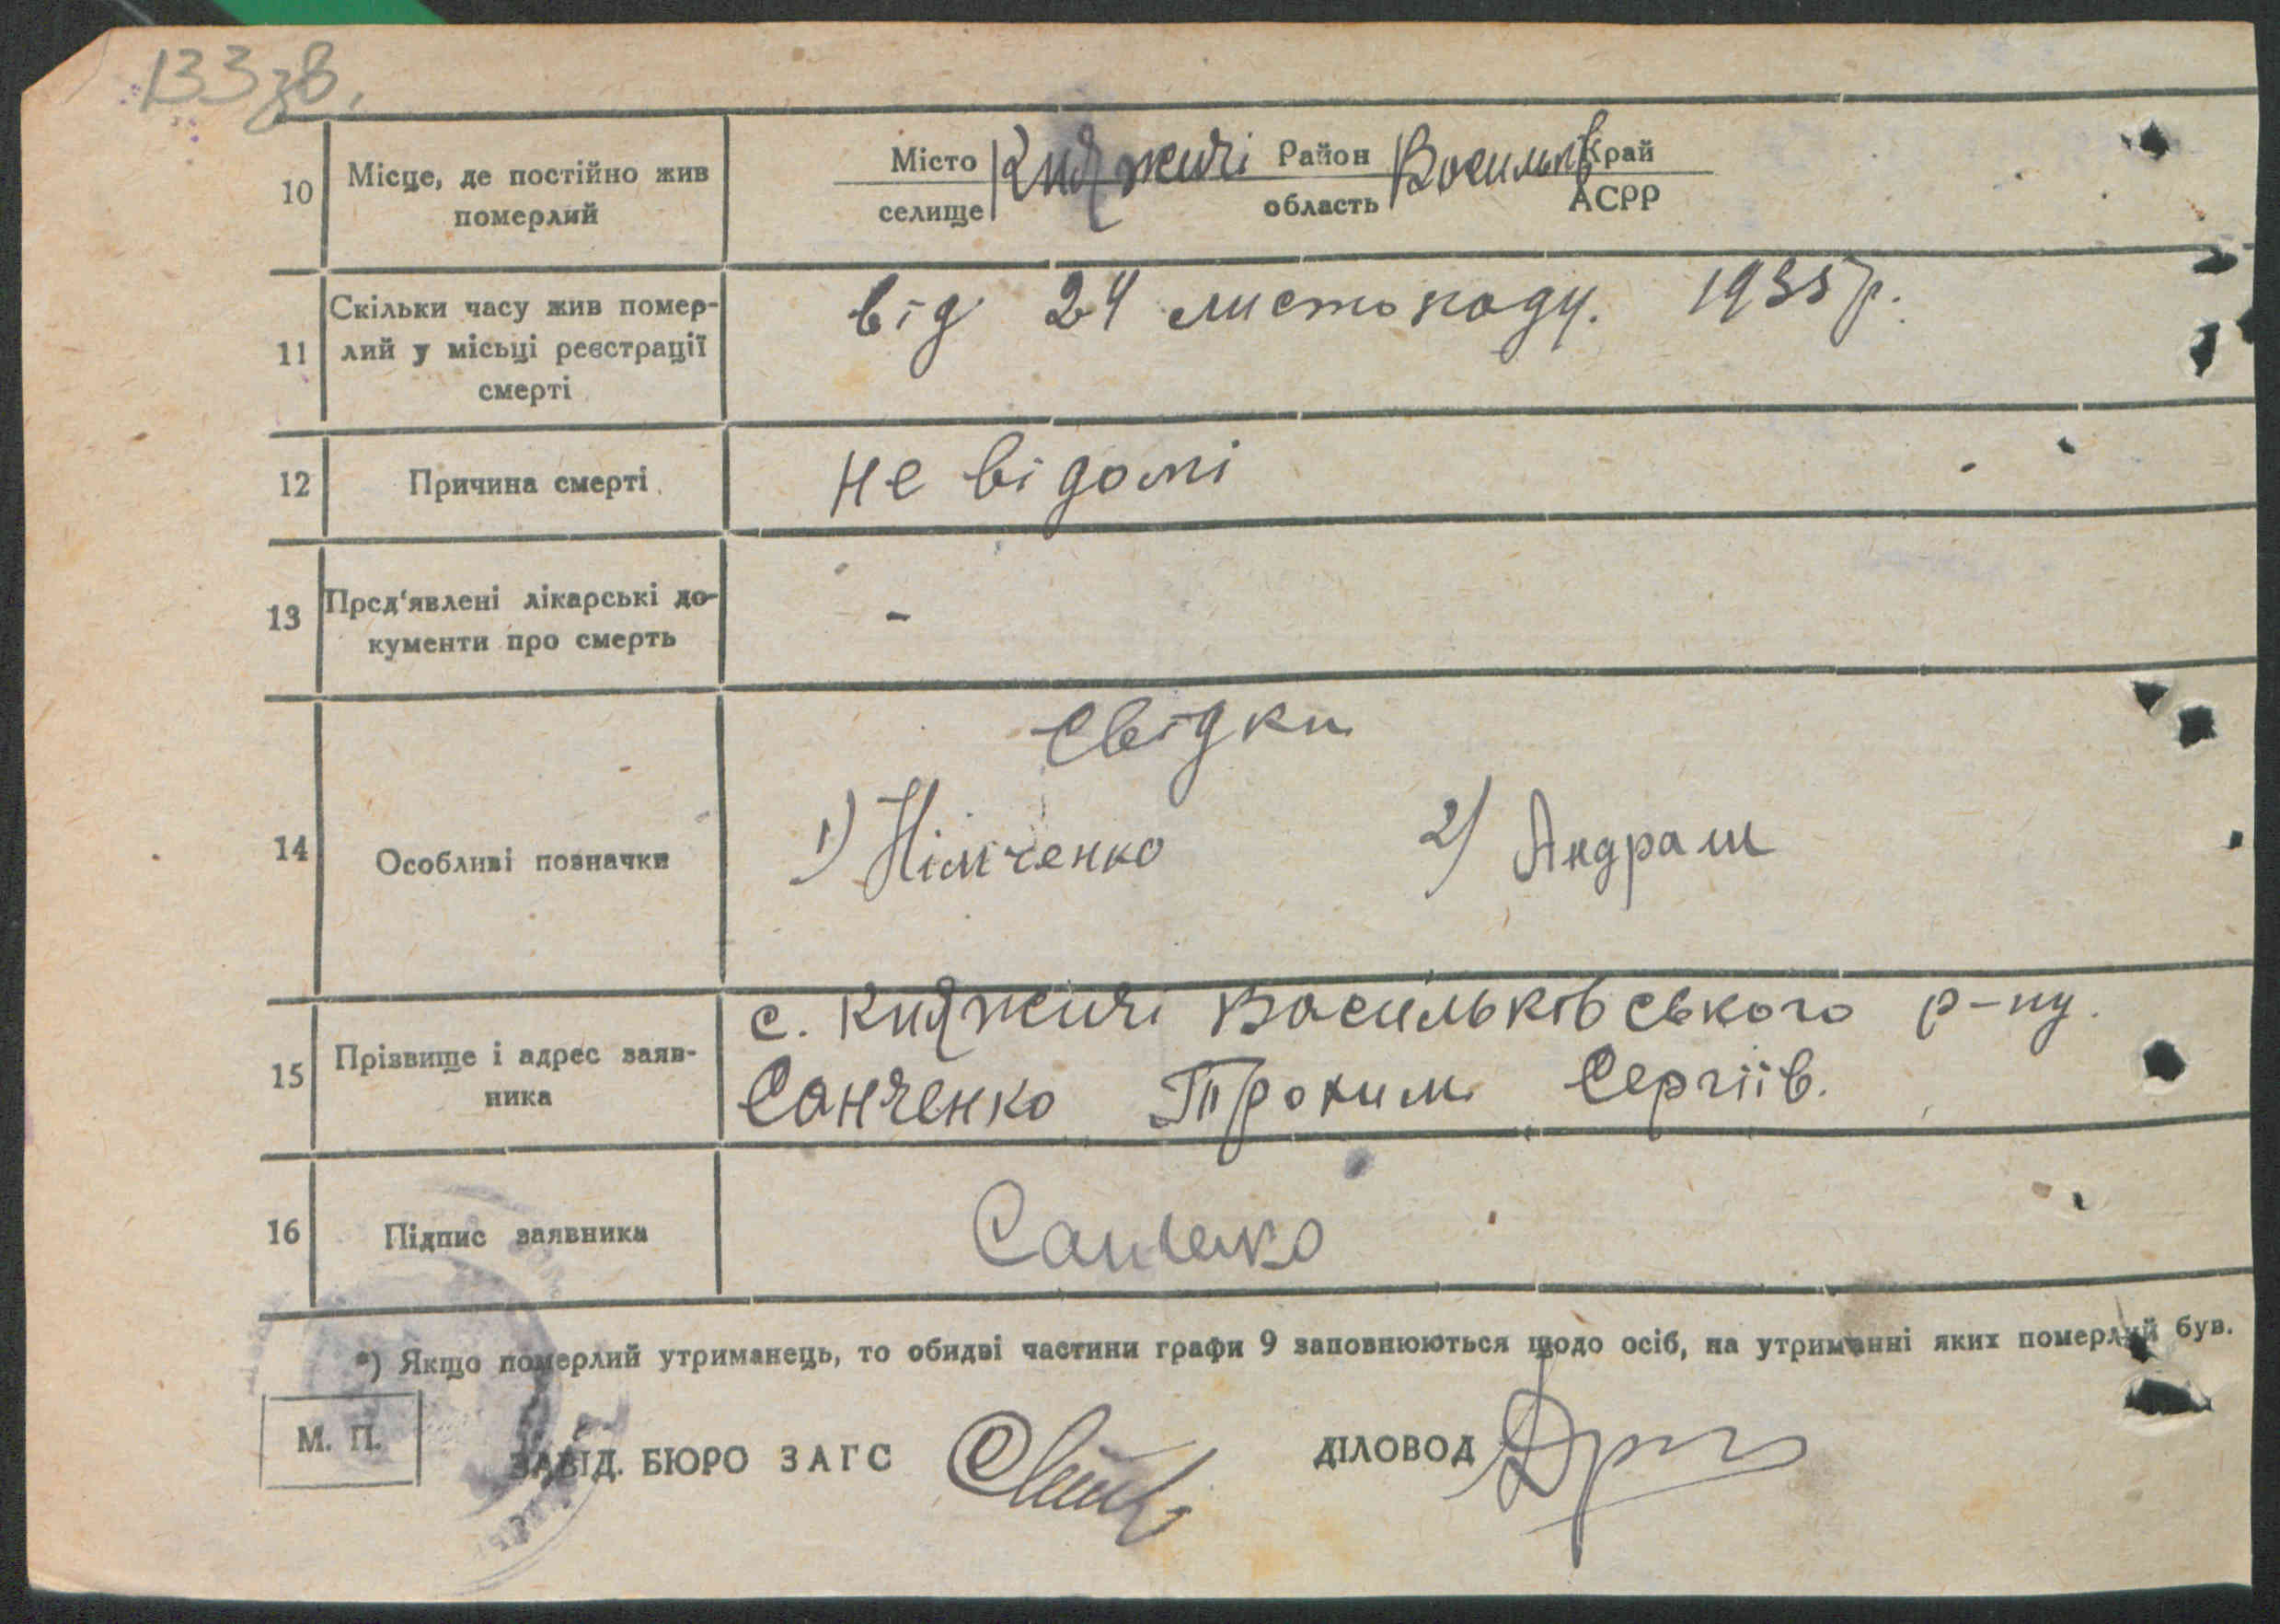 133 зв.
10 Місце, де постійно жив померлий
Місто Княжичі Район Васильків Край
селище область АСРР
11 Скільки часу жив помер-
лий у місьці реєстрації
смерті
від 24 листопаду. 1935 р.
12 Причина смерті
не відомі
13 Пред'явлені лікарські до-
кументи про смерть
-
14 Особливі позначки
Свідки
1) Німченко 2) Андраш
15 Прізвище і адрес заяв-
ника
с. Княжичі Васильківського р-ну.
Санченко Трохим Сергіїв.
16 Підпис заявника
Санченко
*) Якщо померлий утриманець, то обидві частини графи 9 заповнюються щодо осіб, на утриманні яких померлий був.
М. П.
ЗАВІД. БЮРО ЗАГС ДІЛОВОД